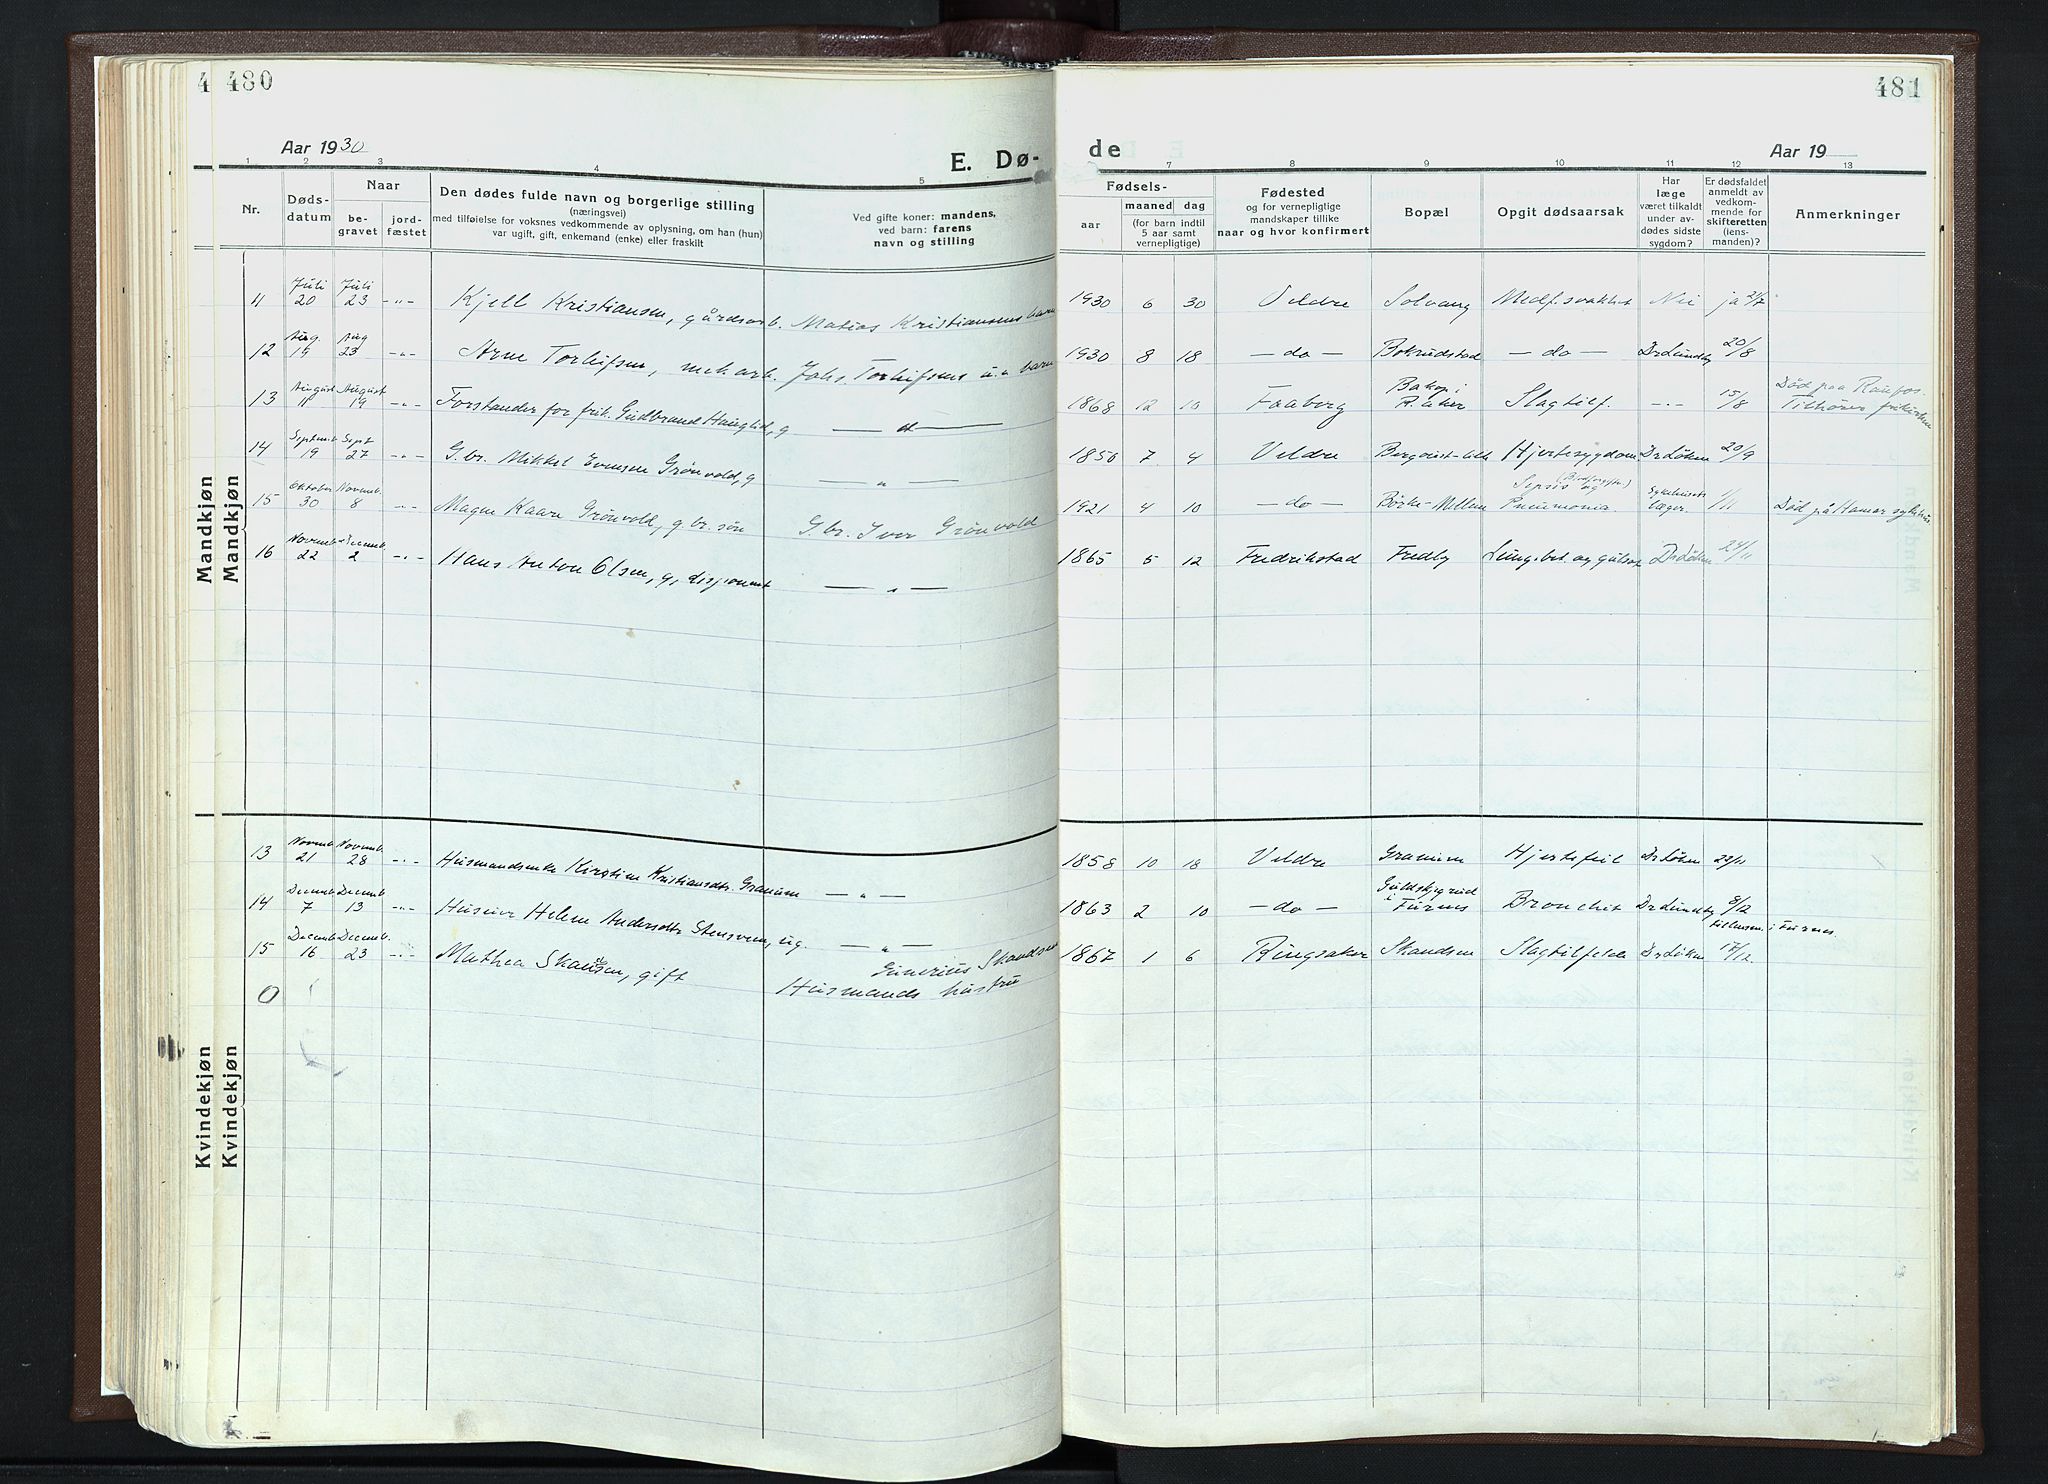 4 480
481
Aar 1930
E. Dø-
de
Aar 19
1 2 3 4 5 7 8 9 10 11 12 13
Nr.
Døds-
datum
Naar
be-
gravet
jord-
fæstet
Den dødes fulde navn og borgerlige stilling
(næringsvei)
med tilføielse for voksnes vedkommende av oplysning, om han (hun)
var ugift, gift, enkemand (enke) eller fraskilt
Ved gifte koner: mandens,
ved barn: farens
navn og stilling
Fødsels-
aar
maaned dag
(for barn indtil
5 aar samt
vernepligtige)
Fødested
og for vernepligtige
mandskaper tillike
naar og hvor konfirmert
Bopæl
Opgit dødsaarsak
Har
læge
været tilkaldt
under av-
dødes sidste
sygdom?
Er dødsfaldet
anmeldt av
vedkom-
mende for
skifteretten
(lens-
manden)?
Anmerkninger
Mandkjøn
Mandkjøn
11 Juli 20 Juli 23 -"- Kjell Kristiansen, gårdsarb. Matias Kristiansens barn 1930 6 30 Veldre Solvang Medf. svakhet Nei ja 21/7
12 Aug. 19 Aug 23 -"- Arne Torleifsen, mek. arb. Johs. Torleifsens u.e. barn 1930 8 18 — do — Bokrudstad — do — Dr Lundby 20/8
13 August 11 August 19 -"- Forstander for frik. Gudbrand Hauglid, g 1868 12 10 Faaberg Bakop i R.aker Slagtilf. -"- 13/8 Død paa Raufos. Tilhører frikirken
14 Septemb 19 Sept 27 -"- G.br. Mikkel Evensen Grønvold, g — " — 1850 7 4 Veldre Hjertesygdom Dr Løken 20/9
15 Oktober 30 Novemb. 8 -"- Magne Kaare Grønvold, g.br. søn G.br. Iver Grønvold 1921 4 10 — do — Børke-Mellem Sepsis (Blodforgiftn.) og Pneumonia. Sykehusets læger 1/11 Død på Hamar sykehus
16 Novemb 22 Decemb. 2 -"- Hans Anton Olsen, g, disponent — " — 1865 5 12 Fredrikstad Fredby Lung.bet. og gulsot Dr Løken 24/11
Kvindekjøn
Kvindekjøn
13 Novemb 21 Novemb. 28 -"- Husmandsenke Kirstine Kristiansdtr. Granum — " — 1858 10 18 Veldre Granum Hjertefeil Dr Løken 22/11
14 Decemb 7 Decemb 13 -"- Huseier Helene Andersdtr Stensveen, ug. — " — 1863 2 10 — do — Guldskjgrud i Furnes Bronchit Dr Lundby 8/12 til lensm. i Furnes.
15 Decemb 16 Decemb. 23 -"- Mathea Skansen, gift Gunerius Skandsen Husmands hustru 1867 1 6 Ringsaker Skandsen Slagtilfelde Dr Løken 17/12.
0